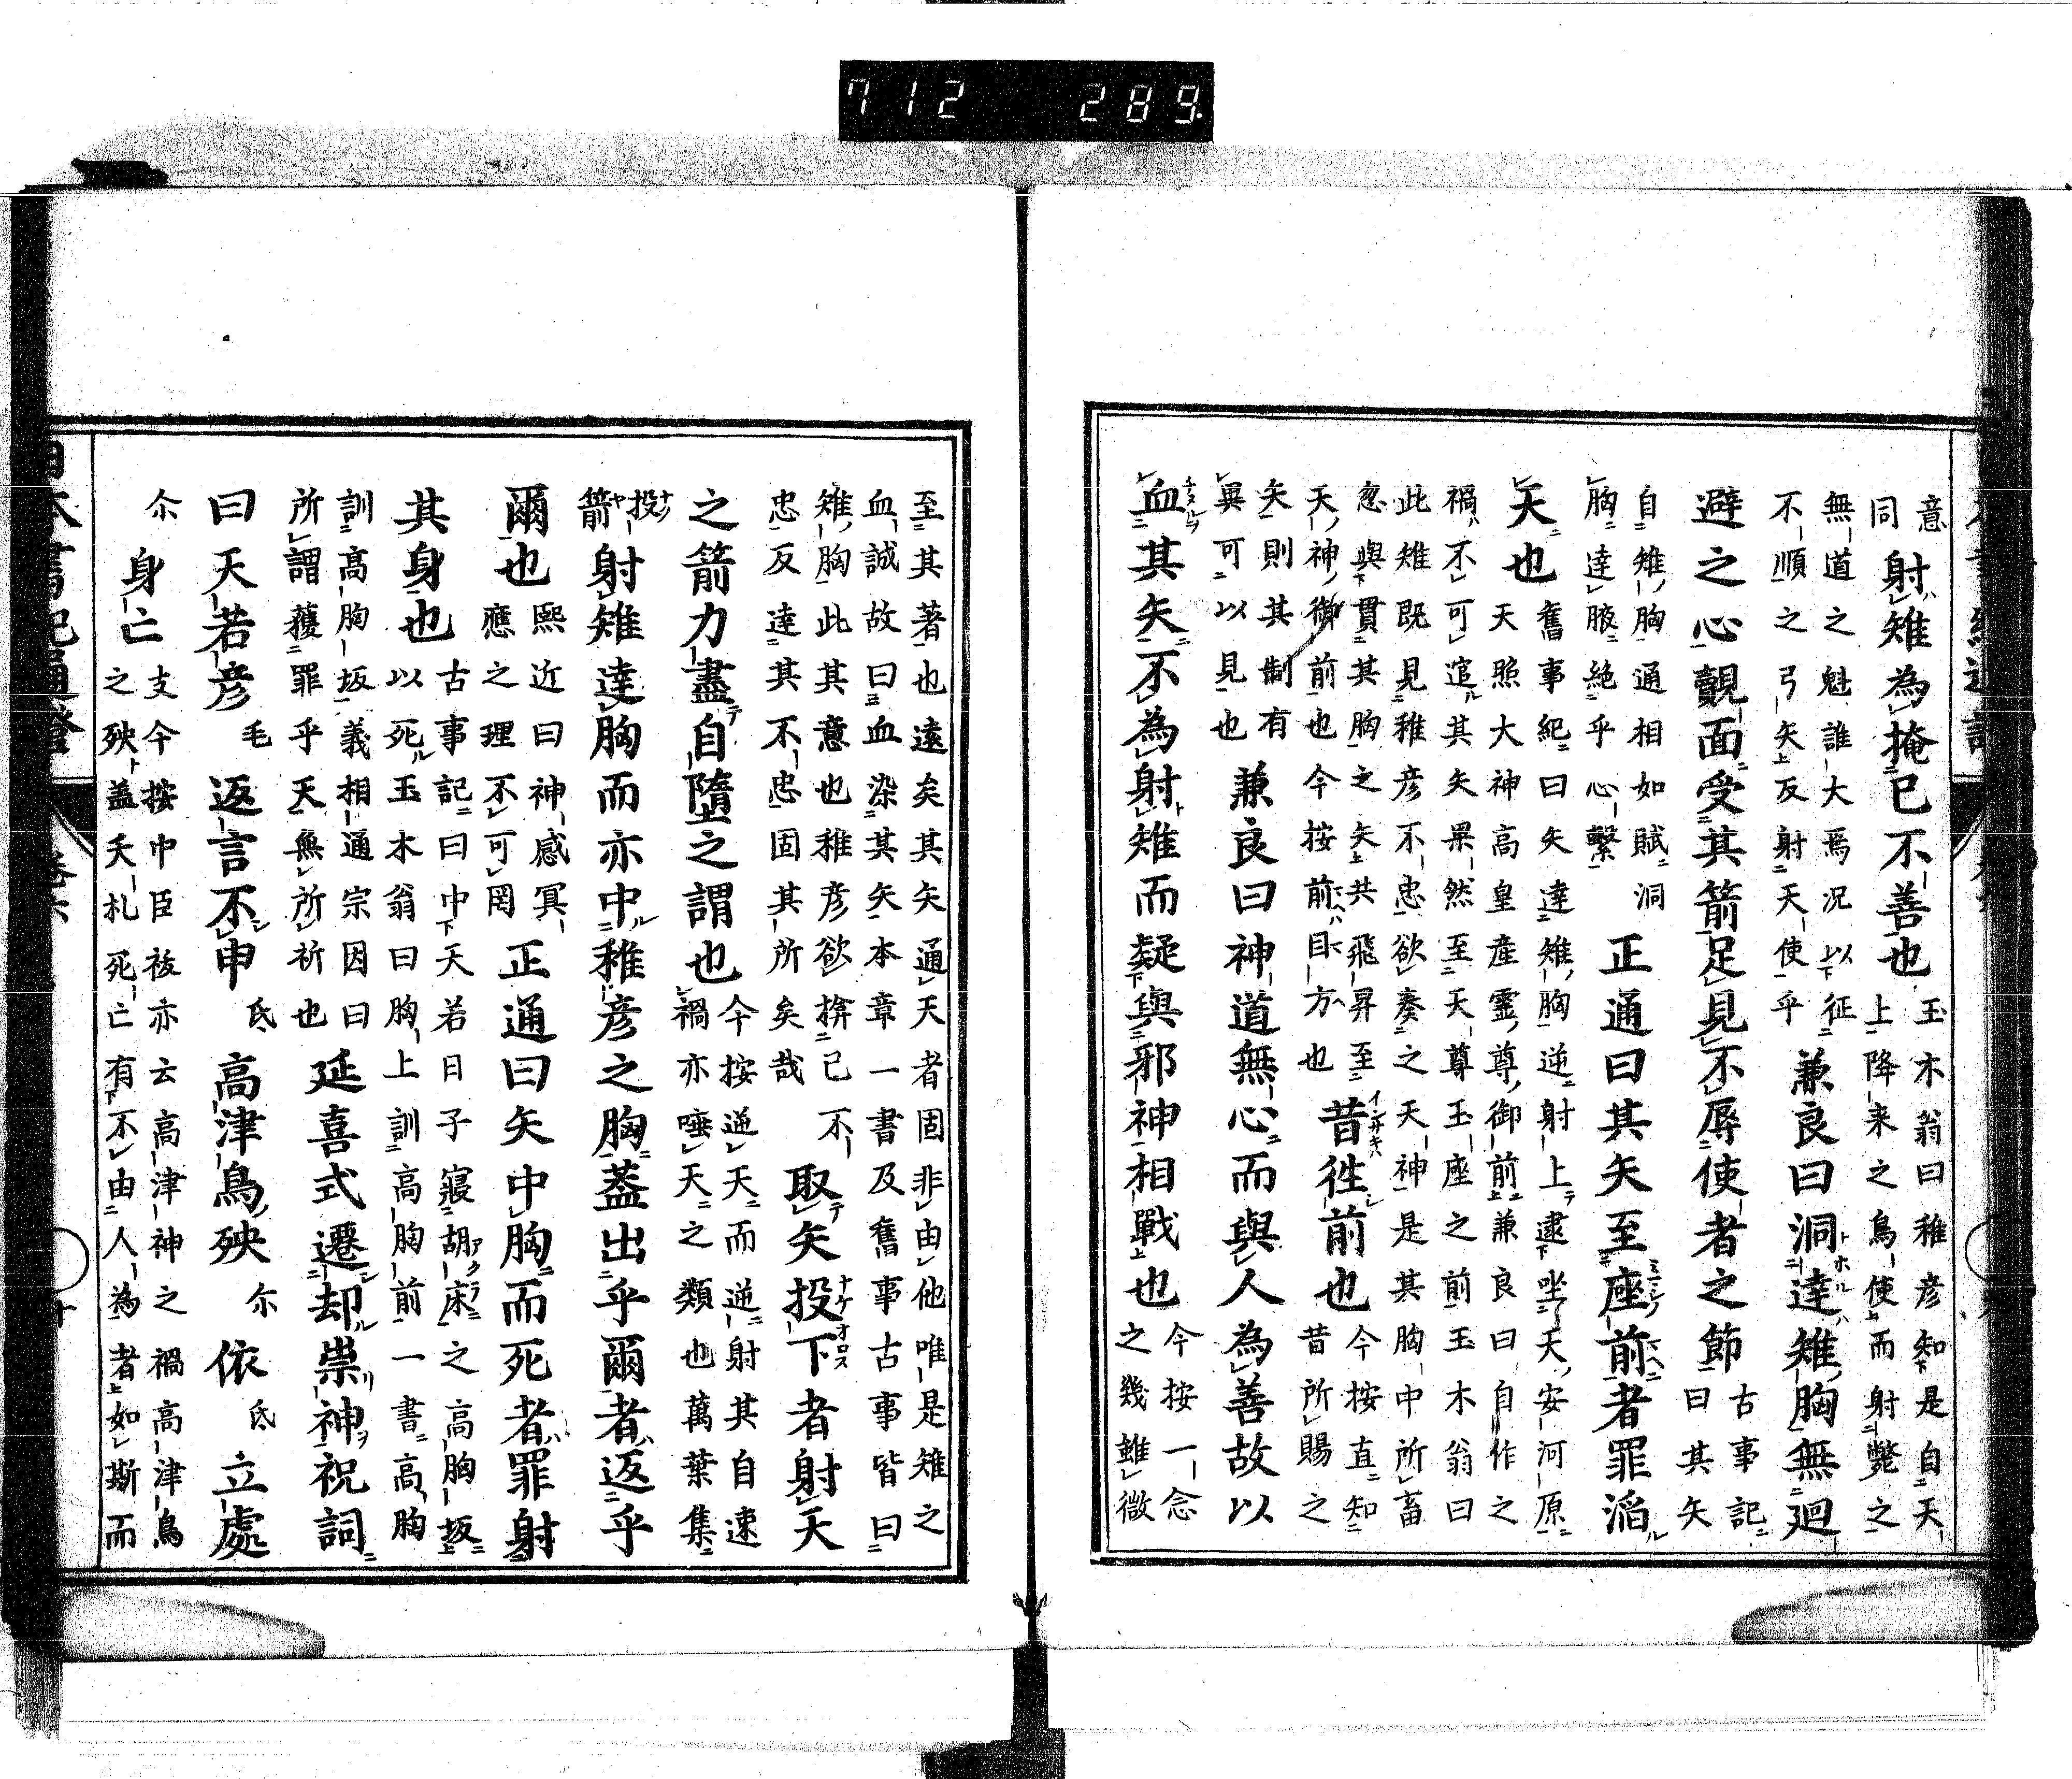 意
同
射雉為掩已不善也
玉木翁曰稚彦知是自天
上降来之鳥使而射斃之
無道之魁誰大焉況以征
不順之弓矢反射天使乎
兼良曰洞達雉胸無廻
避之心覿面受其箭足見不辱使者之節
古事記
曰其矢
自雉胸通相如賦洞
胸達腋絶乎心繋
正通曰其矢至座前者罪滔
天也
舊事紀曰矢達雉胸逆射上逮坐天安河原
天照大神高皇産靈尊御前兼良曰自作之
禍不可逭其矢果然至天尊玉座之前玉木翁曰
此雉既見稚彦不忠欲奏之天神是其胸中所畜
忽與貫其胸之矢共飛昇至
天神御前也今按前目方也
昔徃前也
今按直知
昔所賜之
矢則其制有
異可以見也
兼良曰神道無心而與人為善故以
血其矢不為射雉而疑與邪神相戰也
今按一念
之幾雖微
至其著也遠矣其矢通天者固非由他唯是雉之
血誠故曰血染其矢本章一書及舊事古事皆曰
雉胸此其意也稚彦欲揜已不
忠反達其不忠固其所矣哉
取矢投下者射天
之箭力盡自墮之謂也
今按逆天而逆射其自速
禍亦唾天之類也萬葉集
投
箭
射雉達胸而亦中稚彦之胸蓋出乎爾者返乎
爾也
熙近曰神感冥
應之理不可罔
正通曰矢中胸而死者罪射
其身也
古事記曰中天若日子寢胡床之高胸坂
以死玉木翁曰胸上訓高胸前一書高胸
訓高胸坂義相通宗因曰
所謂獲罪乎天無所祈也
延喜式遷却祟神祝詞
曰天若彦毛返言不申氐高津鳥殃尓依氐立處
尓身亡
支今按中臣祓亦云高津神之禍高津鳥
之殃盖夭札死亡有不由人為者如斯而
日本書紀通證
卷六
712 289